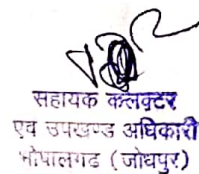 सहायक कलक्टर
एव उपखण्ड अधिकारी
भोपालगढ (जोधपुर)